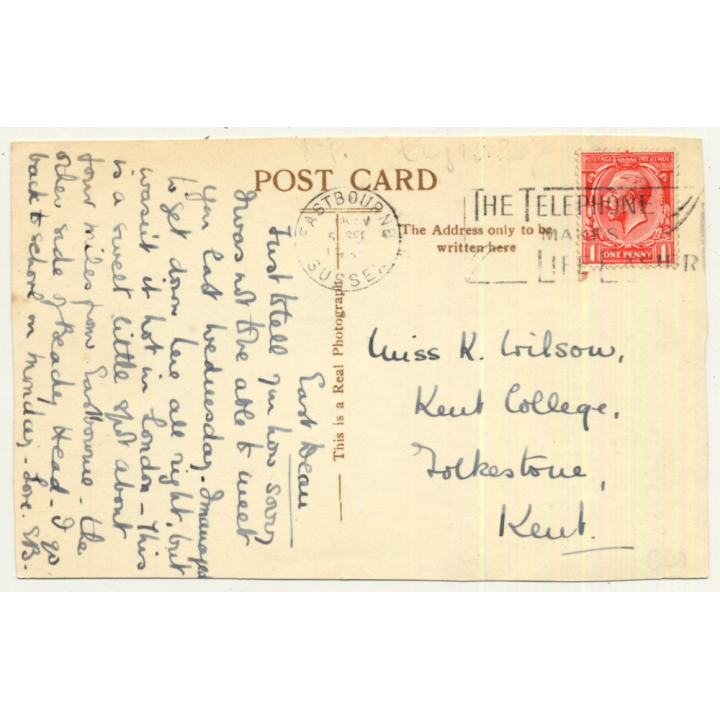 POST CARD
The Address only to be
written here
This is a Real Photograph
EASTBOURNE
SUSSEX
THE TELEPHONE
MAKES
LIFE
POSTAGE REVENUE
1 ONE PENNY
East Dean
Just to tell you how sorry
I was not to be able to meet
you last Wednesday. I managed
to get down here all right, but
wasn't it hot in London – This
is a sweet little spot about
four miles from Eastbourne – the
other side of Beachy Head – I go
back to school on Monday – Love. EB –
Miss K. Wilson,
Kent College,
Folkestone,
Kent.